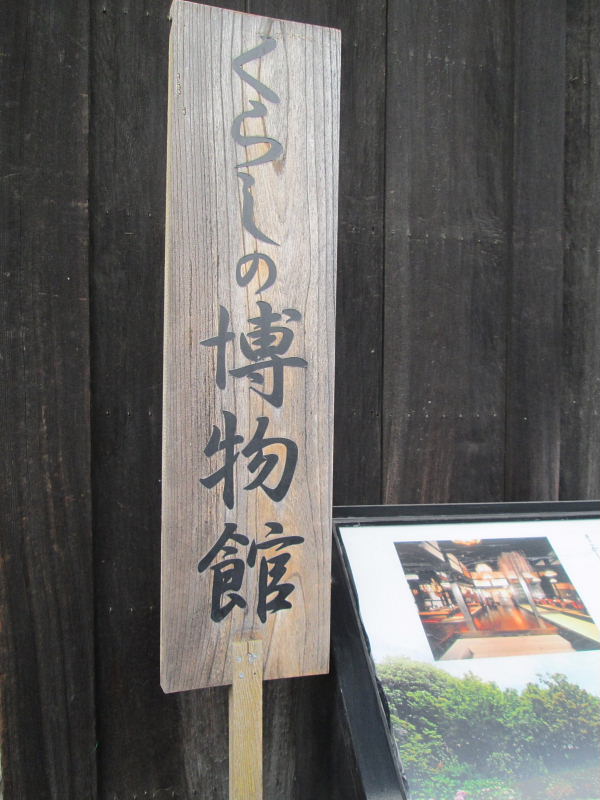 くらしの博物館